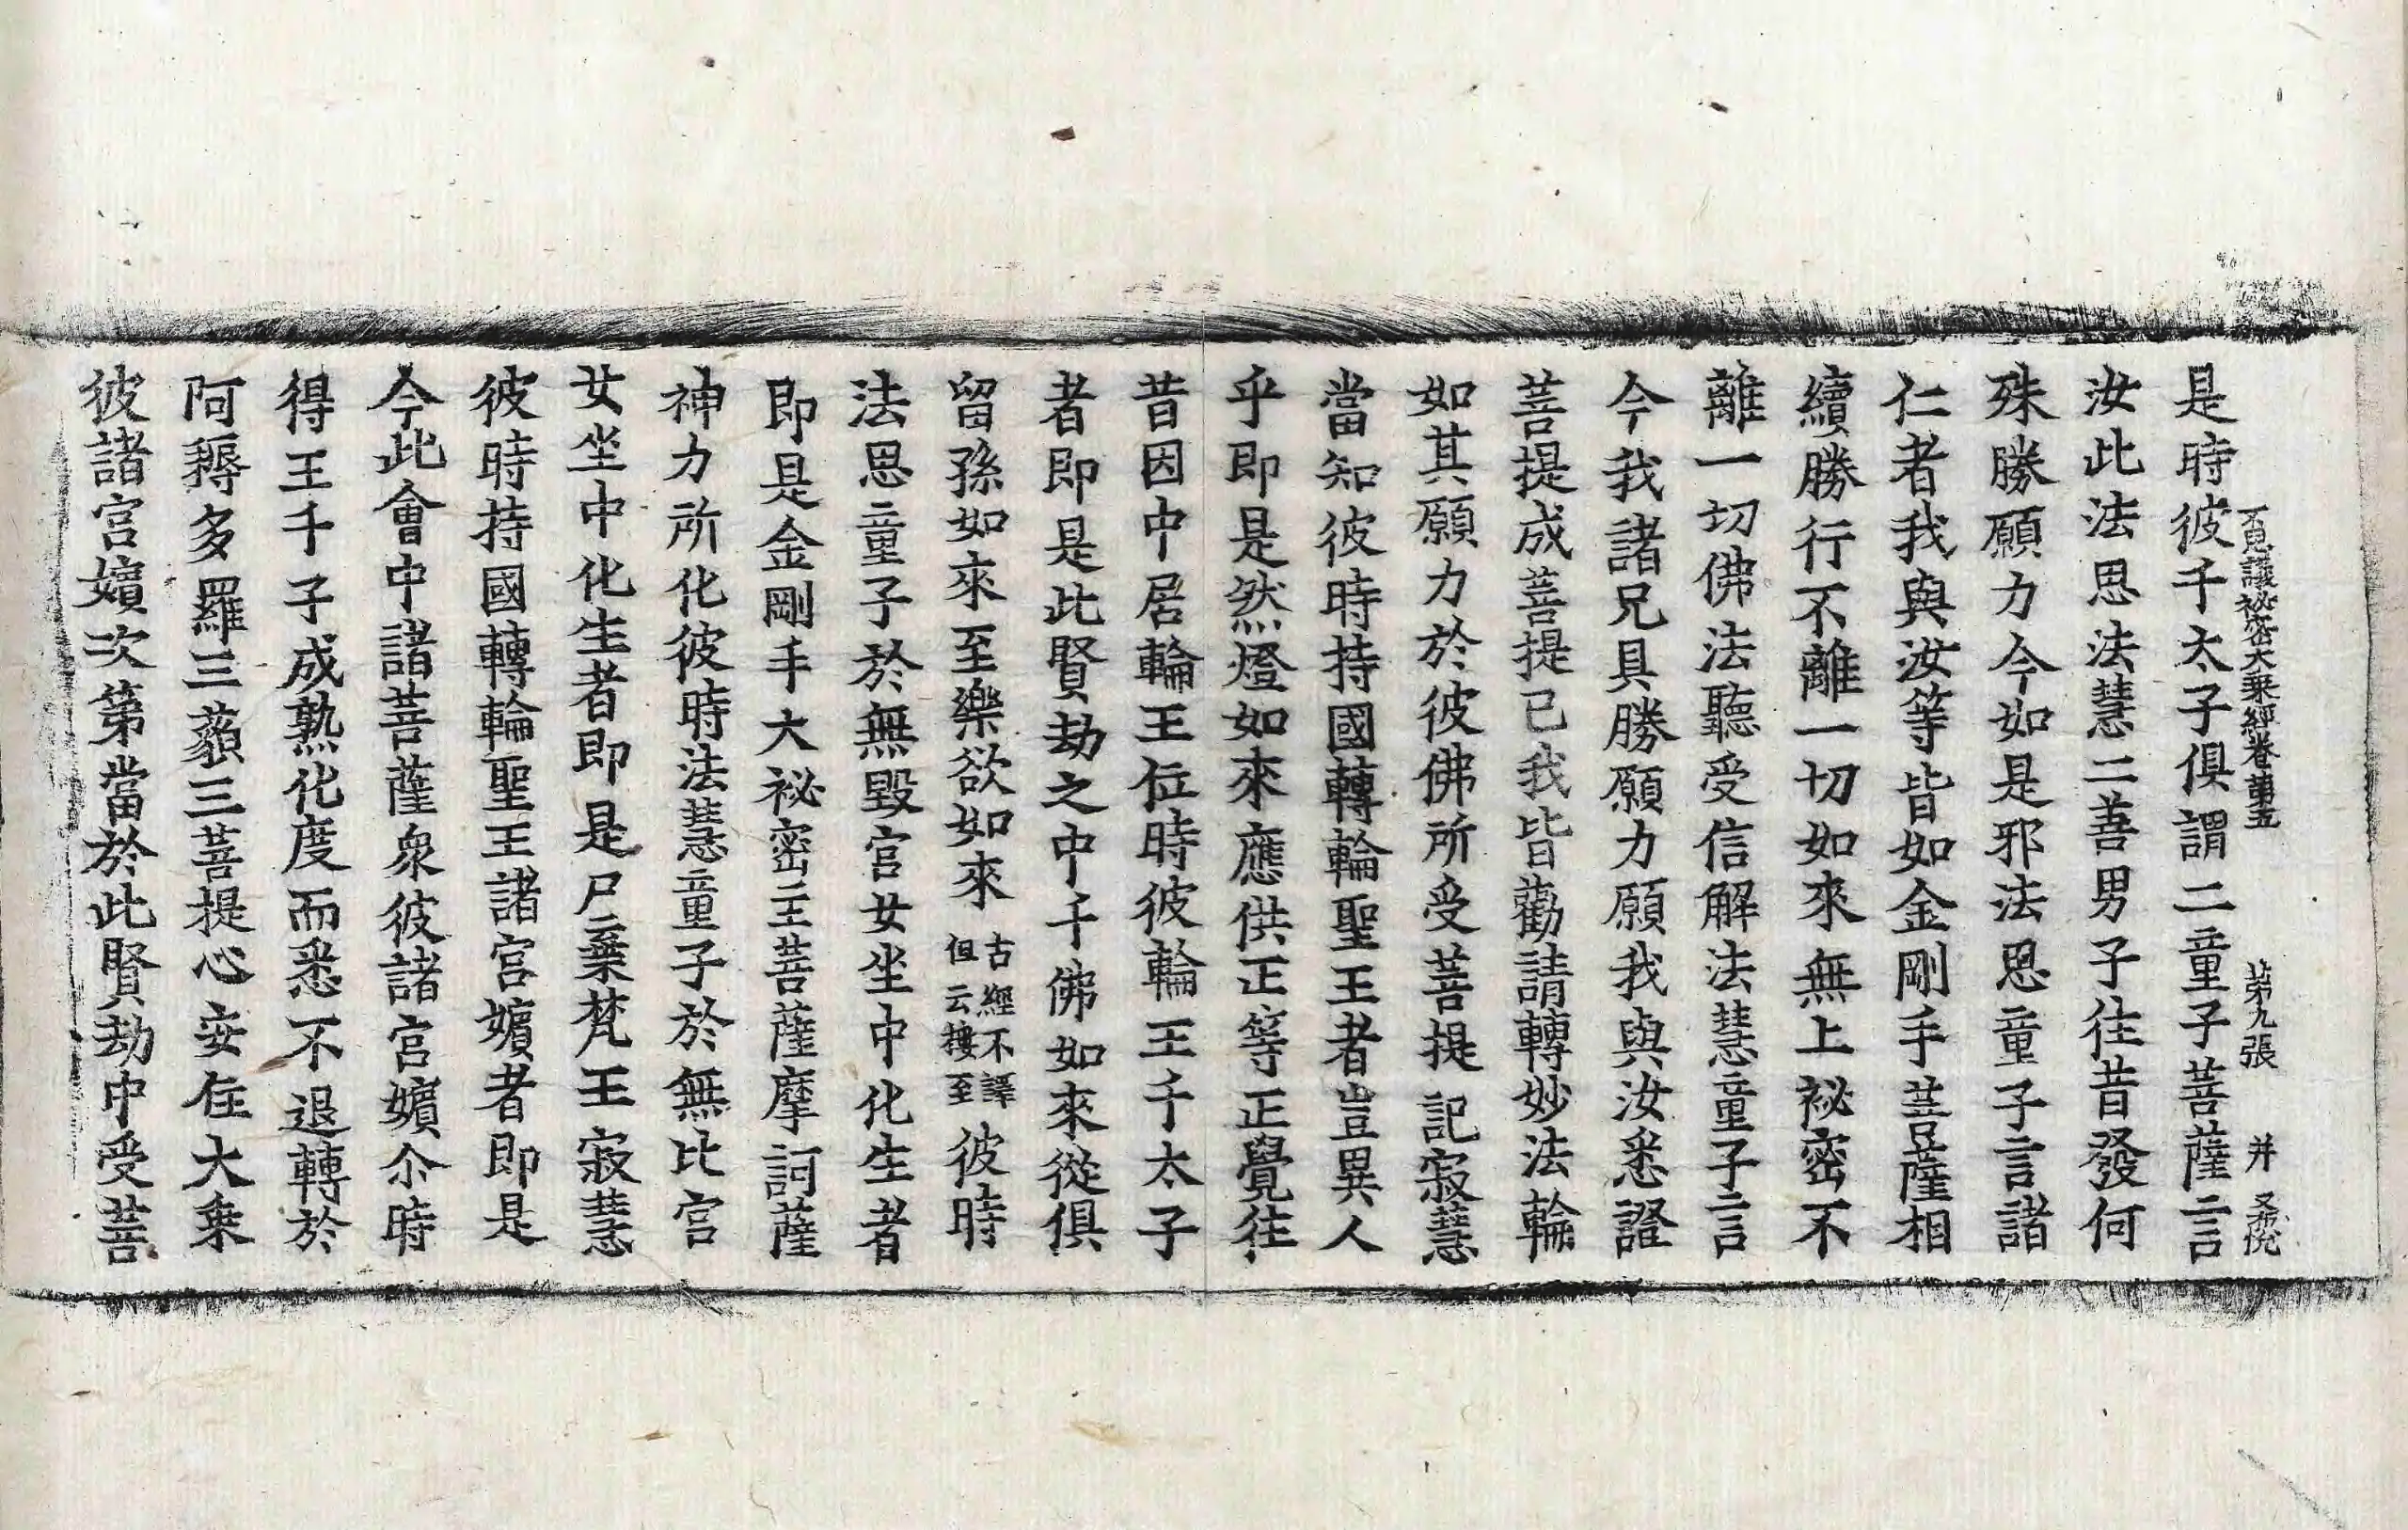 不思議祕密大乘經卷第五 第九張 并
是時彼千太子俱謂二童子菩薩言
汝此法思法慧二善男子往昔發何
殊勝願力今如是邪法思童子言諸
仁者我與汝等皆如金剛手菩薩相
續勝行不離一切如來無上祕密不
離一切佛法聽受信解法慧童子言
今我諸兄具勝願力願我與汝悉證
菩提成菩提已我皆勸請轉妙法輪
如其願力於彼佛所受菩提記寂慧
當知彼時持國轉輪聖王者豈異人
乎即是然燈如來應供正等正覺往
昔因中居輪王位時彼輪王千太子
者即是此賢劫之中千佛如來從俱
留孫如來至樂欲如來古經不譯但云樓至彼時
法思童子於無毀宮女坐中化生者
即是金剛手大祕密主菩薩摩訶薩
神力所化彼時法慧童子於無比宮
女坐中化生者即是尸棄梵王寂慧
彼時持國轉輪聖王諸宮嬪者即是
今此會中諸菩薩衆彼諸宮嬪尒時
得王千子成熟化度而悉不退轉於
阿耨多羅三藐三菩提心安住大乘
彼諸宮嬪次第當於此賢劫中受菩